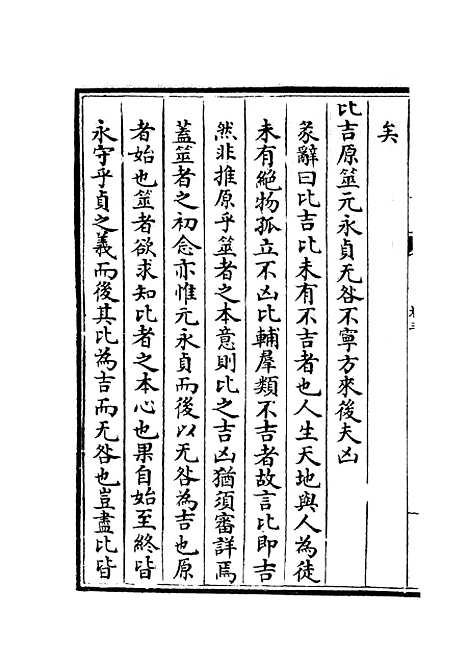 矣
比吉原筮元永貞无咎不寧方來後夫凶
彖辭曰比吉比未有不吉者也人生天地與人為徒
未有絕物孤立不凶比輔羣類不吉者故言比即吉
然非推原乎筮者之本意則比之吉凶猶須審詳焉
蓋筮者之初念亦惟元永貞而後以无咎為吉也原
者始也筮者欲求知比者之本心也果自始至終皆
永守乎貞之義而後其比為吉而无咎也豈盡比皆